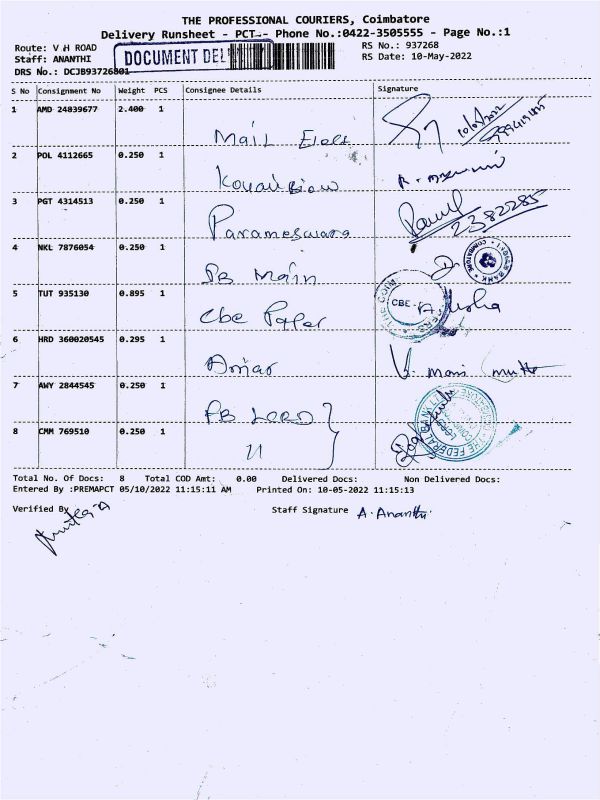 THE PROFESSIONAL COURIERS, Coimbatore
Delivery Runsheet - PCT-- Phone No.:0422-3505555 - Page No.:1
Route: V H ROAD
RS No.: 937268
Staff: ANANTHI
DOCUMENT DEL
RS Date: 10-May-2022
DRS No.: DCJB93726801
S No Consignment No Weight PCS Consignee Details Signature
1 AMD 24839677 2.400 1
Mail
10/05/2022
2 POL 4112665 0.250 1
3 PGT 4314513 0.250 1
Parameswara
2382285
4 NKL 7876054 0.250 1
PB Main
5 TUT 935130 0.895 1
Cbe Paper
CBE
A. Usha
6 HRD 360020545 0.295 1
Amar
V. Mani Muttu
7 AWY 2844545 0.250 1
PB LORD
8 CMM 769510 0.250 1
THE FEDERAL BANK LTD
Total No. Of Docs: 8 Total COD Amt: 0.00 Delivered Docs: Non Delivered Docs:
Entered By :PREMAPCT 05/10/2022 11:15:11 AM Printed On: 10-05-2022 11:15:13
Verified By
Staff Signature A. Ananthi